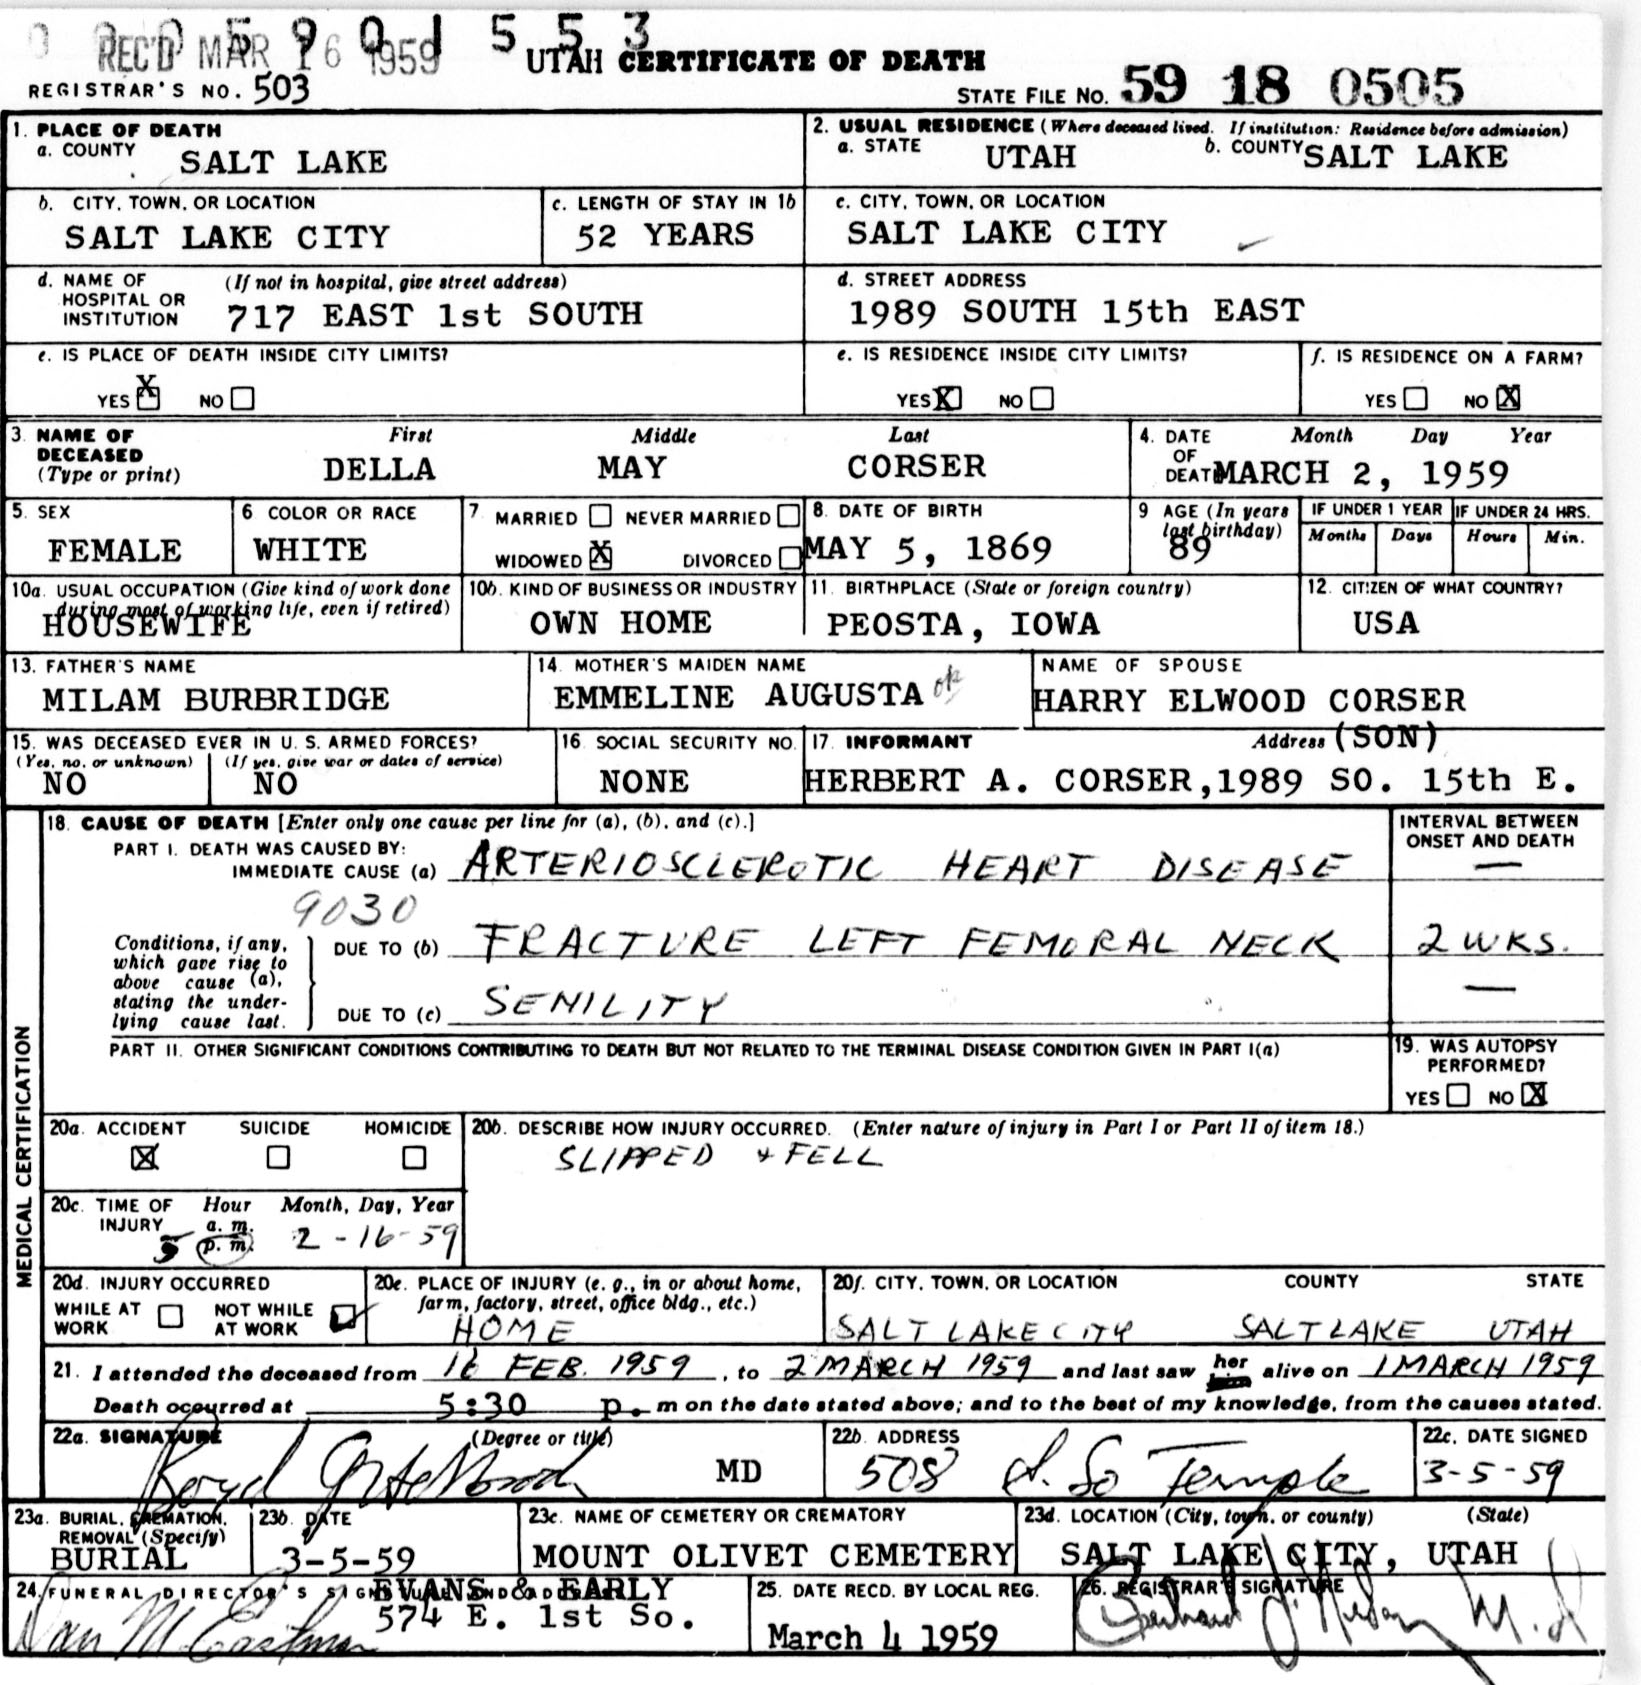 0 0 0 5 9 0 1 5 5 3
REC'D MAR 16 1959
UTAH CERTIFICATE OF DEATH
REGISTRAR'S NO. 503
STATE FILE NO. 59 18 0505
1. PLACE OF DEATH
a. COUNTY SALT LAKE
2. USUAL RESIDENCE (Where deceased lived. If institution: Residence before admission)
a. STATE UTAH b. COUNTY SALT LAKE
b. CITY, TOWN, OR LOCATION
SALT LAKE CITY
c. LENGTH OF STAY IN 1b
52 YEARS
c. CITY, TOWN, OR LOCATION
SALT LAKE CITY
d. NAME OF HOSPITAL OR INSTITUTION (If not in hospital, give street address)
717 EAST 1st SOUTH
d. STREET ADDRESS
1989 SOUTH 15th EAST
e. IS PLACE OF DEATH INSIDE CITY LIMITS?
YES X NO
e. IS RESIDENCE INSIDE CITY LIMITS?
YES X NO
f. IS RESIDENCE ON A FARM?
YES NO X
3. NAME OF DECEASED (Type or print)
First Middle Last
DELLA MAY CORSER
4. DATE OF DEATH Month Day Year
MARCH 2, 1959
5. SEX
FEMALE
6 COLOR OR RACE
WHITE
7 MARRIED NEVER MARRIED
WIDOWED X DIVORCED
8. DATE OF BIRTH
MAY 5, 1869
9 AGE (In years last birthday)
89
IF UNDER 1 YEAR
Months Days
IF UNDER 24 HRS.
Hours Min.
10a. USUAL OCCUPATION (Give kind of work done during most of working life, even if retired)
HOUSEWIFE
10b. KIND OF BUSINESS OR INDUSTRY
OWN HOME
11. BIRTHPLACE (State or foreign country)
PEOSTA, IOWA
12. CITIZEN OF WHAT COUNTRY?
USA
13. FATHER'S NAME
MILAM BURBRIDGE
14. MOTHER'S MAIDEN NAME
EMMELINE AUGUSTA ok
NAME OF SPOUSE
HARRY ELWOOD CORSER
15. WAS DECEASED EVER IN U. S. ARMED FORCES?
(Yes, no. or unknown) (If yes, give war or dates of service)
NO NO
16. SOCIAL SECURITY NO.
NONE
17. INFORMANT Address (SON)
HERBERT A. CORSER, 1989 SO. 15th E.
MEDICAL CERTIFICATION
18. CAUSE OF DEATH [Enter only one cause per line for (a), (b), and (c).]
INTERVAL BETWEEN ONSET AND DEATH
PART I. DEATH WAS CAUSED BY:
IMMEDIATE CAUSE (a) ARTERIOSCLEROTIC HEART DISEASE —
9030
Conditions, if any, which gave rise to above cause (a), stating the underlying cause last.
DUE TO (b) FRACTURE LEFT FEMORAL NECK 2 WKS.
DUE TO (c) SENILITY —
PART II. OTHER SIGNIFICANT CONDITIONS CONTRIBUTING TO DEATH BUT NOT RELATED TO THE TERMINAL DISEASE CONDITION GIVEN IN PART I(a)
19. WAS AUTOPSY PERFORMED?
YES NO X
20a. ACCIDENT X SUICIDE HOMICIDE
20b. DESCRIBE HOW INJURY OCCURRED. (Enter nature of injury in Part I or Part II of item 18.)
SLIPPED + FELL
20c. TIME OF INJURY Hour Month, Day, Year
a. m.
5 p. m. 2-16-59
20d. INJURY OCCURRED
WHILE AT WORK NOT WHILE AT WORK
20e. PLACE OF INJURY (e. g., in or about home, farm, factory, street, office bldg., etc.)
HOME
20f. CITY, TOWN, OR LOCATION COUNTY STATE
SALT LAKE CITY SALT LAKE UTAH
21. I attended the deceased from 16 FEB. 1959, to 2 MARCH 1959 and last saw her him alive on 1 MARCH 1959
Death occurred at 5:30 p. m on the date stated above; and to the best of my knowledge, from the causes stated.
22a. SIGNATURE (Degree or title)
Boyd MD
22b. ADDRESS
508 So Temple
22c. DATE SIGNED
3-5-59
23a. BURIAL, CREMATION, REMOVAL (Specify)
BURIAL
23b. DATE
3-5-59
23c. NAME OF CEMETERY OR CREMATORY
MOUNT OLIVET CEMETERY
23d. LOCATION (City, town, or county) (State)
SALT LAKE CITY, UTAH
24. FUNERAL DIRECTOR'S SIGNATURE AND ADDRESS
EVANS & EARLY
574 E. 1st So.
Dan M Eastman
25. DATE RECD. BY LOCAL REG.
March 4 1959
26. REGISTRAR'S SIGNATURE
M.D